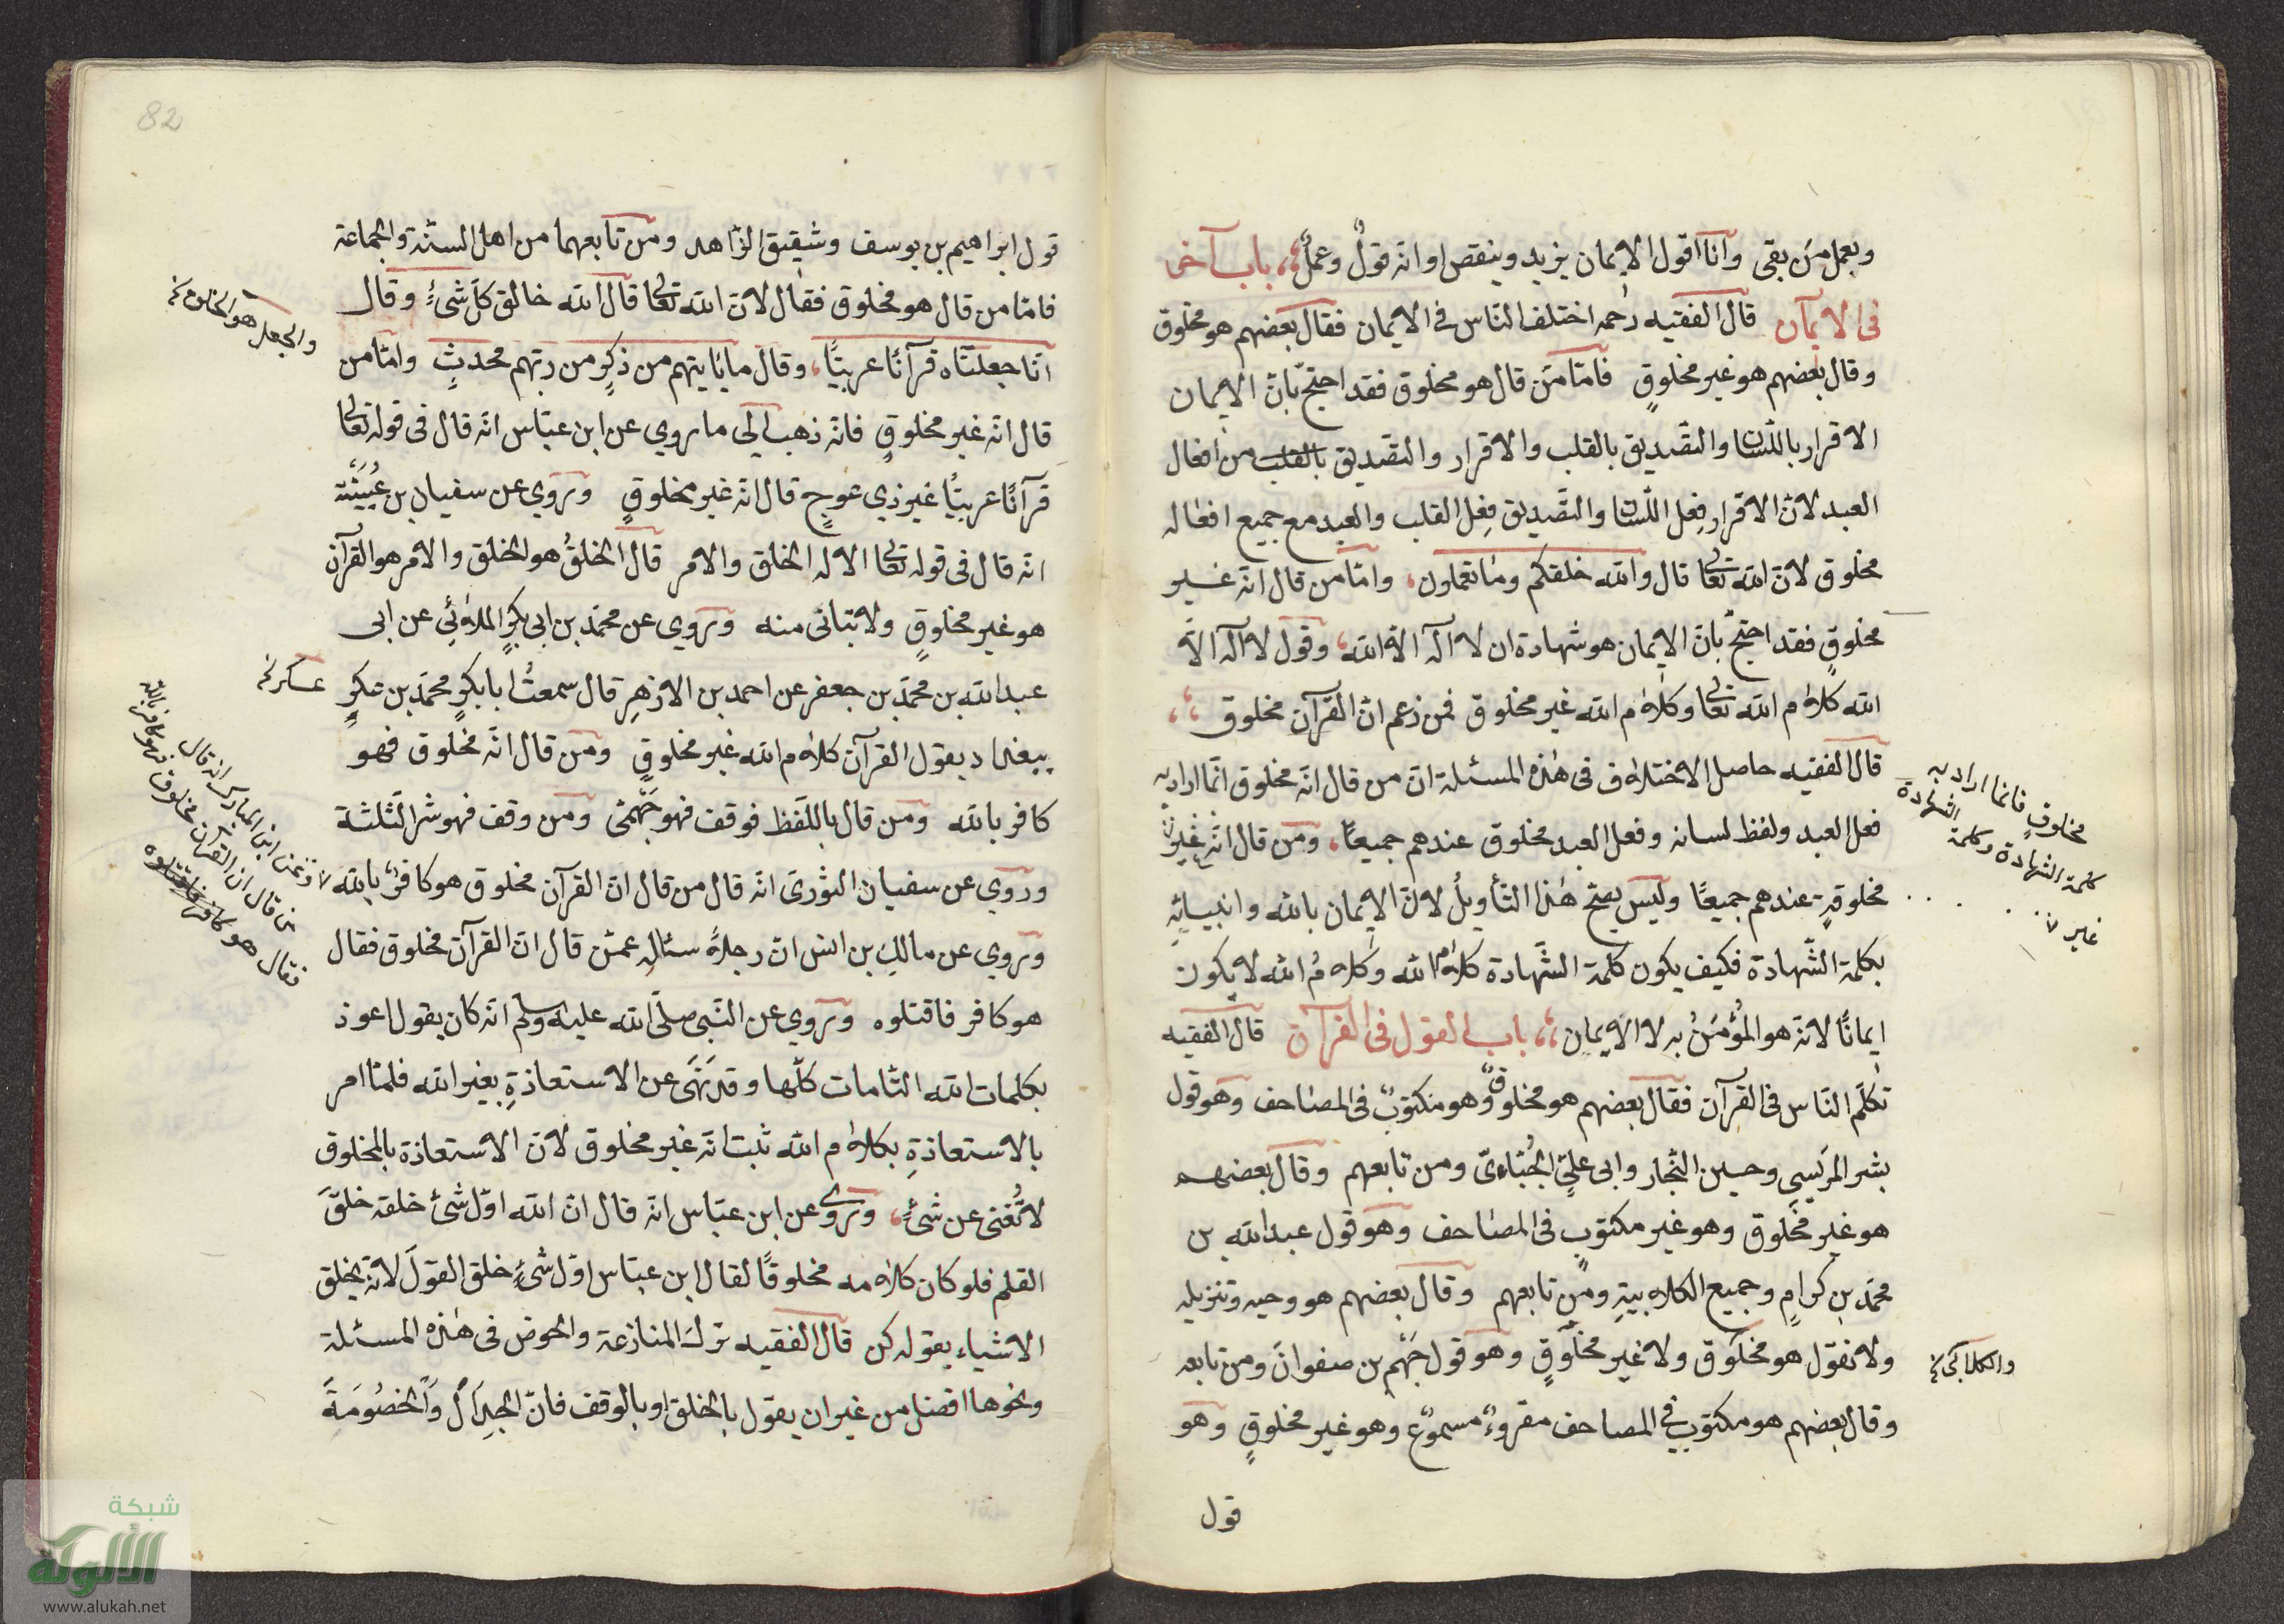 وبعمل من بقى وانا اقول الايمان يزيد وينقص وانه قولٌ وعملٌ، باب آخر
فى الايمآن قال الفقيه رحمه اختلف الناس فى الايمان فقال بعضهم هو مخلوق
وقال بعضهم هو غير مخلوقٍ فامّا من قال هو مخلوق فقد احتجّ بانّ الايمان
الاقرار باللّسان والتّصديق بالقلب والاقرار والتصديق بالقلب من افعال
العبد لانّ الاقرار فِعل اللّسان والتّصديق فِعل القلب والعبد مع جميع افعاله
مخلوق لانّ الله تعالى قال والله خلقكم وما تعملون، وامّا من قال انّه غير
مخلوقٍ فقد احتجّ بانّ الايمان هو شهادة ان لا اله الا الله، وقول لا اله الاّ
الله كلام الله تعالى وكلام الله غير مخلوق فمن زعم انّ القرآن مخلوق،
قال الفقيه حاصل الاختلاف فى هذه المسئلة انّ من قال انّه مخلوق انّما اراد به
فعل العبد ولفظ لسانه وفعل العبد مخلوق عندهم جميعًا، ومن قال انّه غير
مخلوقةٍ عندهم جميعًا وليس يصحّ هذا التأويلُ لانّ الايمان بالله وانبيائه
بكلمة الشّهادة فكيف يكون كلمة الشّهادة كلام الله وكلامُ الله لا يكون
ايمانًا لانّه هو المؤمَنُ به لا الايمان، باب القول فى القرآن قال الفقيه
تكلّم النّاس فى القرآن فقال بعضهم هو مخلوقٌ وهو مكتوبٌ فى المصاحف وهو قول
بشر المريسي وحسين النّجار وابى عليّ الجُبّاءىّ ومن تابعهم وقال بعضهم
هو غير مخلوق وهو غير مكتوبٍ فى المصاحف وهو قول عبدالله بن
محمّد بن كرامٍ وجميع الكلابيةِ ومن تابعهم وقال بعضهم هو وحيه وتنزيله
ولا نقول هو مخلوق ولا غير مخلوقٍ وهو قول جَهْم بن صفوانَ ومن تابعه
وقال بعضهم هو مكتوب فى المصاحف مقروءٌ مسموعٌ وهو غير مخلوقٍ وهو
قول
مخلوقٍ فانما اراد به
كلمة الشهادة وكلمة
الشهادة
غير
والكلابى
82
قول ابراهيم بن يوسف وشقيق الزّاهد ومن تابعهما من اهل السنّة والجماعة
فامّا من قال هو مخلوق فقال لانّ الله تعالى قال الله خالق كلّ شىءٍ وقال
انّا جعلناه قرآنًا عربيًّا، وقال ما ياتيهم من ذكرٍ من ربّهم محدثٍ وامّا من
قال انّه غير مخلوقٍ فانّه ذهب الى ما روي عن ابن عبّاس انّه قال فى قوله تعالى
قرآنًا عربيًّا غير ذي عوجٍ قال انّه غير مخلوقٍ وروي عن سفيان بن عُيَيْنَة
انّه قال فى قوله تعالى الا له الخلق والامر قال الخلقُ هو الخلق والامر هو القرآن
هو غير مخلوقٍ ولا تباتى منه وروي عن محمّد بن ابى بكرٍ الملائي عن ابى
عبدالله بن محمّد بن جعفر عن احمد بن الازهر قال سمعتُ ابا بكرٍ محمّد بن عكرٍ
ببغداد يقول القرآن كلام الله غير مخلوقٍ ومن قال انّه مخلوق فهو
كافر بالله ومن قال باللّفظ فوقف فهو جَهْمىٌ ومن وقف فهو شرّ الثّلثة
وروي عن سفيان الثّورىّ انّه قال من قال انّ القرآن مخلوق هو كافرٌ بالله
وروي عن مالك بن انس انّ رجلاً سئاله عمّن قال انّ القرآن مخلوق فقال
هو كافر فاقتلوه وروي عن النّبى صلّى الله عليه وسلّم انّه كان يقول اعوذ
بكلمات الله التّامات كلّها وقد نَهَى عن الاستعاذةِ بغير الله فلمّا امر
بالاستعاذةِ بكلام الله ثبت انّه غير مخلوق لانّ الاستعاذة بالمخلوق
لا تُغنى عن شىءٍ، وروى عن ابن عبّاس انّه قال انّ الله اوّل شئ خلقه خلقَ
القلم فلو كان كلامه مخلوقًا لقال ابن عبّاس اوّل شىءٍ خلق القولَ لانّه يخلق
الاشياء بقوله كن قال الفقيه ترك المنازعة والخوض فى هذه المسئلة
ونحوها افضل من غير ان يقول بالخلق او بالوقف فانّ الجِدَالَ وَالخصُومَةَ
والجعل هو الخلق
عسكر
وعن ابن المبارك انه قال
من قال ان القرآن مخلوق فهو كافر بالله
فقال هو كافر فاقتلوه
شبكة
الألوكة
www.alukah.net